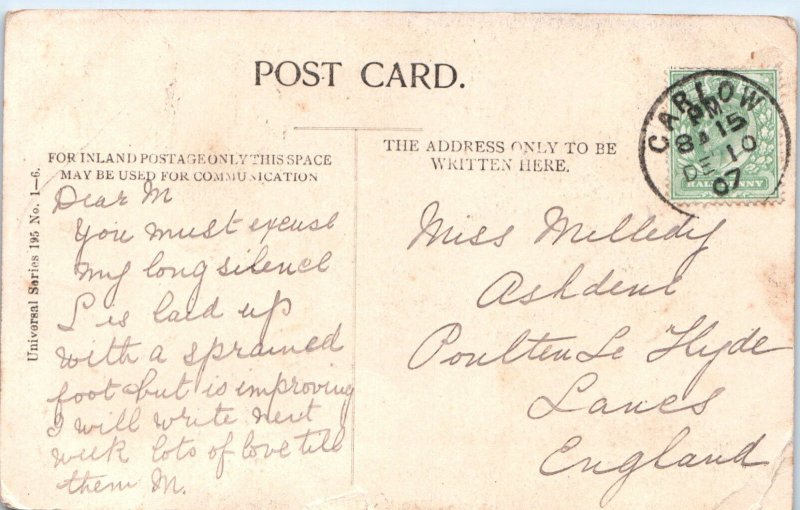 POST CARD.
FOR INLAND POSTAGE ONLY THIS SPACE
MAY BE USED FOR COMMUNICATION
THE ADDRESS ONLY TO BE
WRITTEN HERE.
Universal Series 195 No. 1—6.
Dear M
You must excuse
my long silence
L is laid up
with a sprained
foot but is improving
I will write next
week lots of love till
then M.
Miss Melledy
Ashdene
Poulten Le Hyde
Lancs
England
CARLOW
PM
8 15
DE 10
07
HALFPENNY